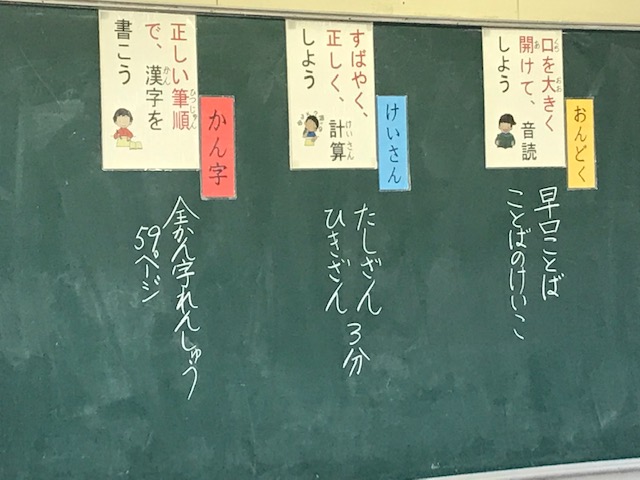 おんどく
口を大きく
開けて、音読
しよう
早口ことば
ことばのけいこ
けいさん
すばやく、
正しく、計算
しよう
たしざん
ひきざん 3分
かん字
正しい筆順
で、漢字を
書こう
全かん字れんしゅう
59ページ